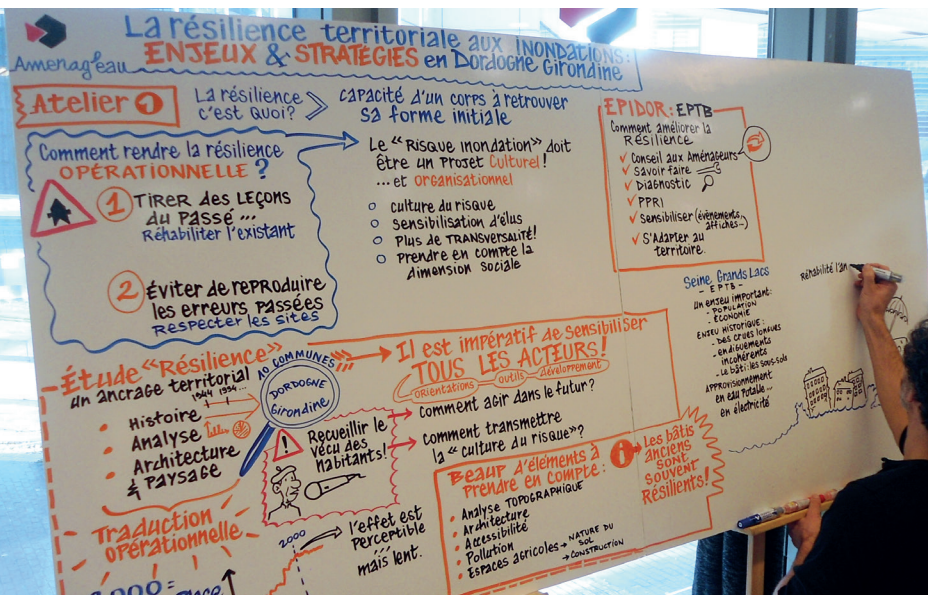 La résilience territoriale aux INONDATIONS:
ENJEUX & STRATÉGIES en Dordogne Girondine
Amenag'eau
Atelier 1
La résilience
c'est Quoi?
CAPACITÉ D'UN CORPS À RETROUVER
SA FORME INITIALE
Comment rendre la résilience
OPÉRATIONNELLE ?
1 TIRER DES LEÇONS
DU PASSÉ ...
Réhabiliter l'existant
2 Éviter de reproduire
les erreurs passées
Respecter les sites
Le "RISQUE INONDATION" doit
être un Projet Culturel!
... et organisationnel
culture du risque
Sensibilisation d'élus
Plus de TRANSVERSALITÉ!
Prendre en compte la
dimension sociale
EPIDOR: EPTB
Comment améliorer la
Résilience
Conseil aux Aménageurs
Savoir faire
Diagnostic
PPRI
Sensibiliser (événements,
affiches...)
S'Adapter au
territoire.
Seine Grands Lacs
- EPTB -
un enjeu important:
- POPULATION
- ÉCONOMIE
ENJEU HISTORIQUE:
- Des crues longues
- endiguements
incohérents
- Le bâti: les sous-sols
APPROVISIONNEMENT
en eau Potable...
en électricité
Réhabilité l'an
Étude "Résilience"
un ancrage territorial...
1944 1954...
Histoire
Analyse
Architecture
& PAYSAGE
10 COMMUNES
DORDOGNE
Girondine
Traduction
opérationnelle
Il est impératif de sensibiliser
TOUS LES ACTEURS!
orientations outils développement
Comment agir dans le futur?
Comment transmettre
la "culture du risque"?
! Recueillir le
vécu des
habitants!
2000
l'effet est
perceptible
mais lent.
Beaup d'éléments à
Prendre en compte:
Analyse TOPOGRAPHIQUE
Architecture
Accessibilité
Pollution
Espaces agricoles → NATURE DU
SOL
→ CONSTRUCTION
Les bâtis
anciens
sont
souvent
Résilients!